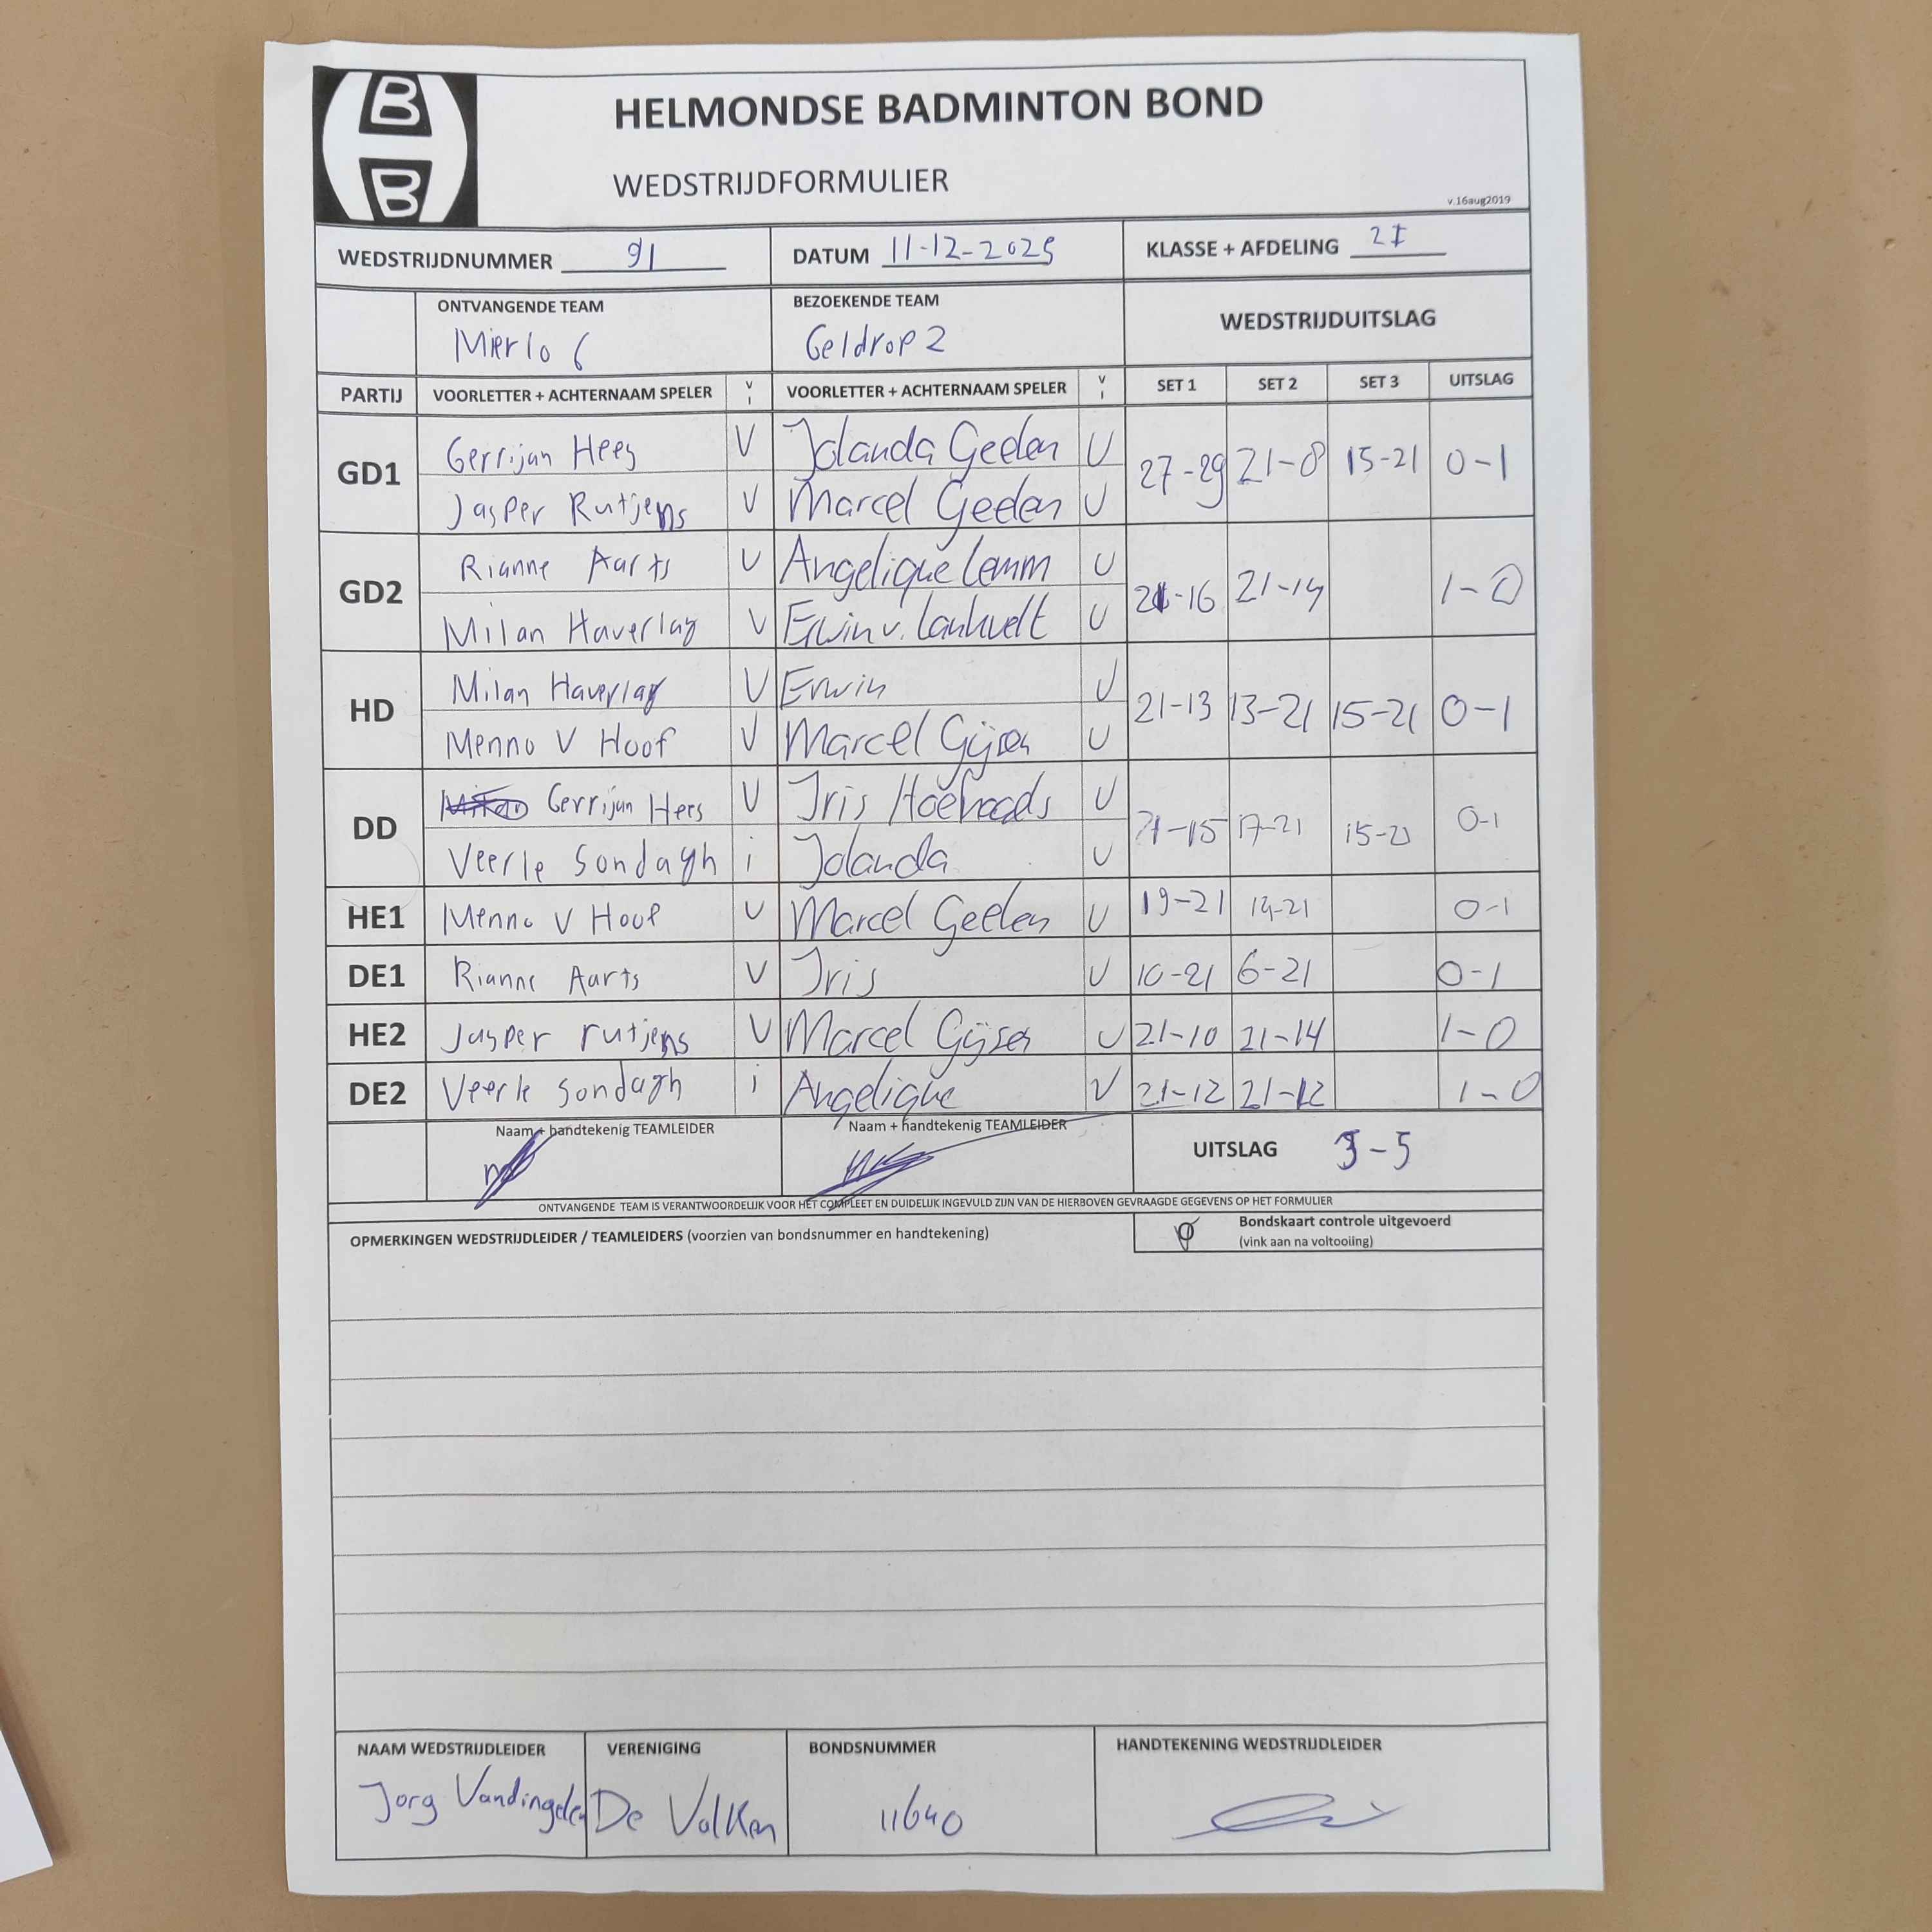 HELMONDSE BADMINTON BOND
WEDSTRIJDFORMULIER
v.16aug2019
WEDSTRIJDNUMMER 91 DATUM 11-12-2025 KLASSE + AFDELING 2I
ONTVANGENDE TEAM BEZOEKENDE TEAM WEDSTRIJDUITSLAG
Mierlo 6 Geldrop 2
PARTIJ VOORLETTER + ACHTERNAAM SPELER V I VOORLETTER + ACHTERNAAM SPELER V I SET 1 SET 2 SET 3 UITSLAG
GD1 Gerrijan Hees V Jolanda Geelen V 27-29 21-8 15-21 0-1
Jasper Rutjens V Marcel Geelen V
GD2 Rianne Aarts V Angelique Lamm V 21-16 21-14 1-0
Milan Haverlag V Erwin v. V
HD Milan Haverlag V Erwin V 21-13 13-21 15-21 0-1
Menno V Hoof V Marcel Gijsen V
DD Gerrijan Hees V Iris V 21-15 17-21 15-21 0-1
Veerle Sondagh i Jolanda V
HE1 Menno V Hoof V Marcel Geelen V 19-21 14-21 0-1
DE1 Rianne Aarts V Iris V 10-21 6-21 0-1
HE2 Jasper rutjens V Marcel Gijsen V 21-10 21-14 1-0
DE2 Veerle Sondagh i Angelique V 21-12 21-12 1-0
Naam + handtekenig TEAMLEIDER Naam + handtekenig TEAMLEIDER UITSLAG 3-5
ONTVANGENDE TEAM IS VERANTWOORDELIJK VOOR HET COMPLEET EN DUIDELIJK INGEVULD ZIJN VAN DE HIERBOVEN GEVRAAGDE GEGEVENS OP HET FORMULIER
OPMERKINGEN WEDSTRIJDLEIDER / TEAMLEIDERS (voorzien van bondsnummer en handtekening) Bondskaart controle uitgevoerd
(vink aan na voltooiing)
NAAM WEDSTRIJDLEIDER VERENIGING BONDSNUMMER HANDTEKENING WEDSTRIJDLEIDER
Jorg Vandingelen De Valken 11640